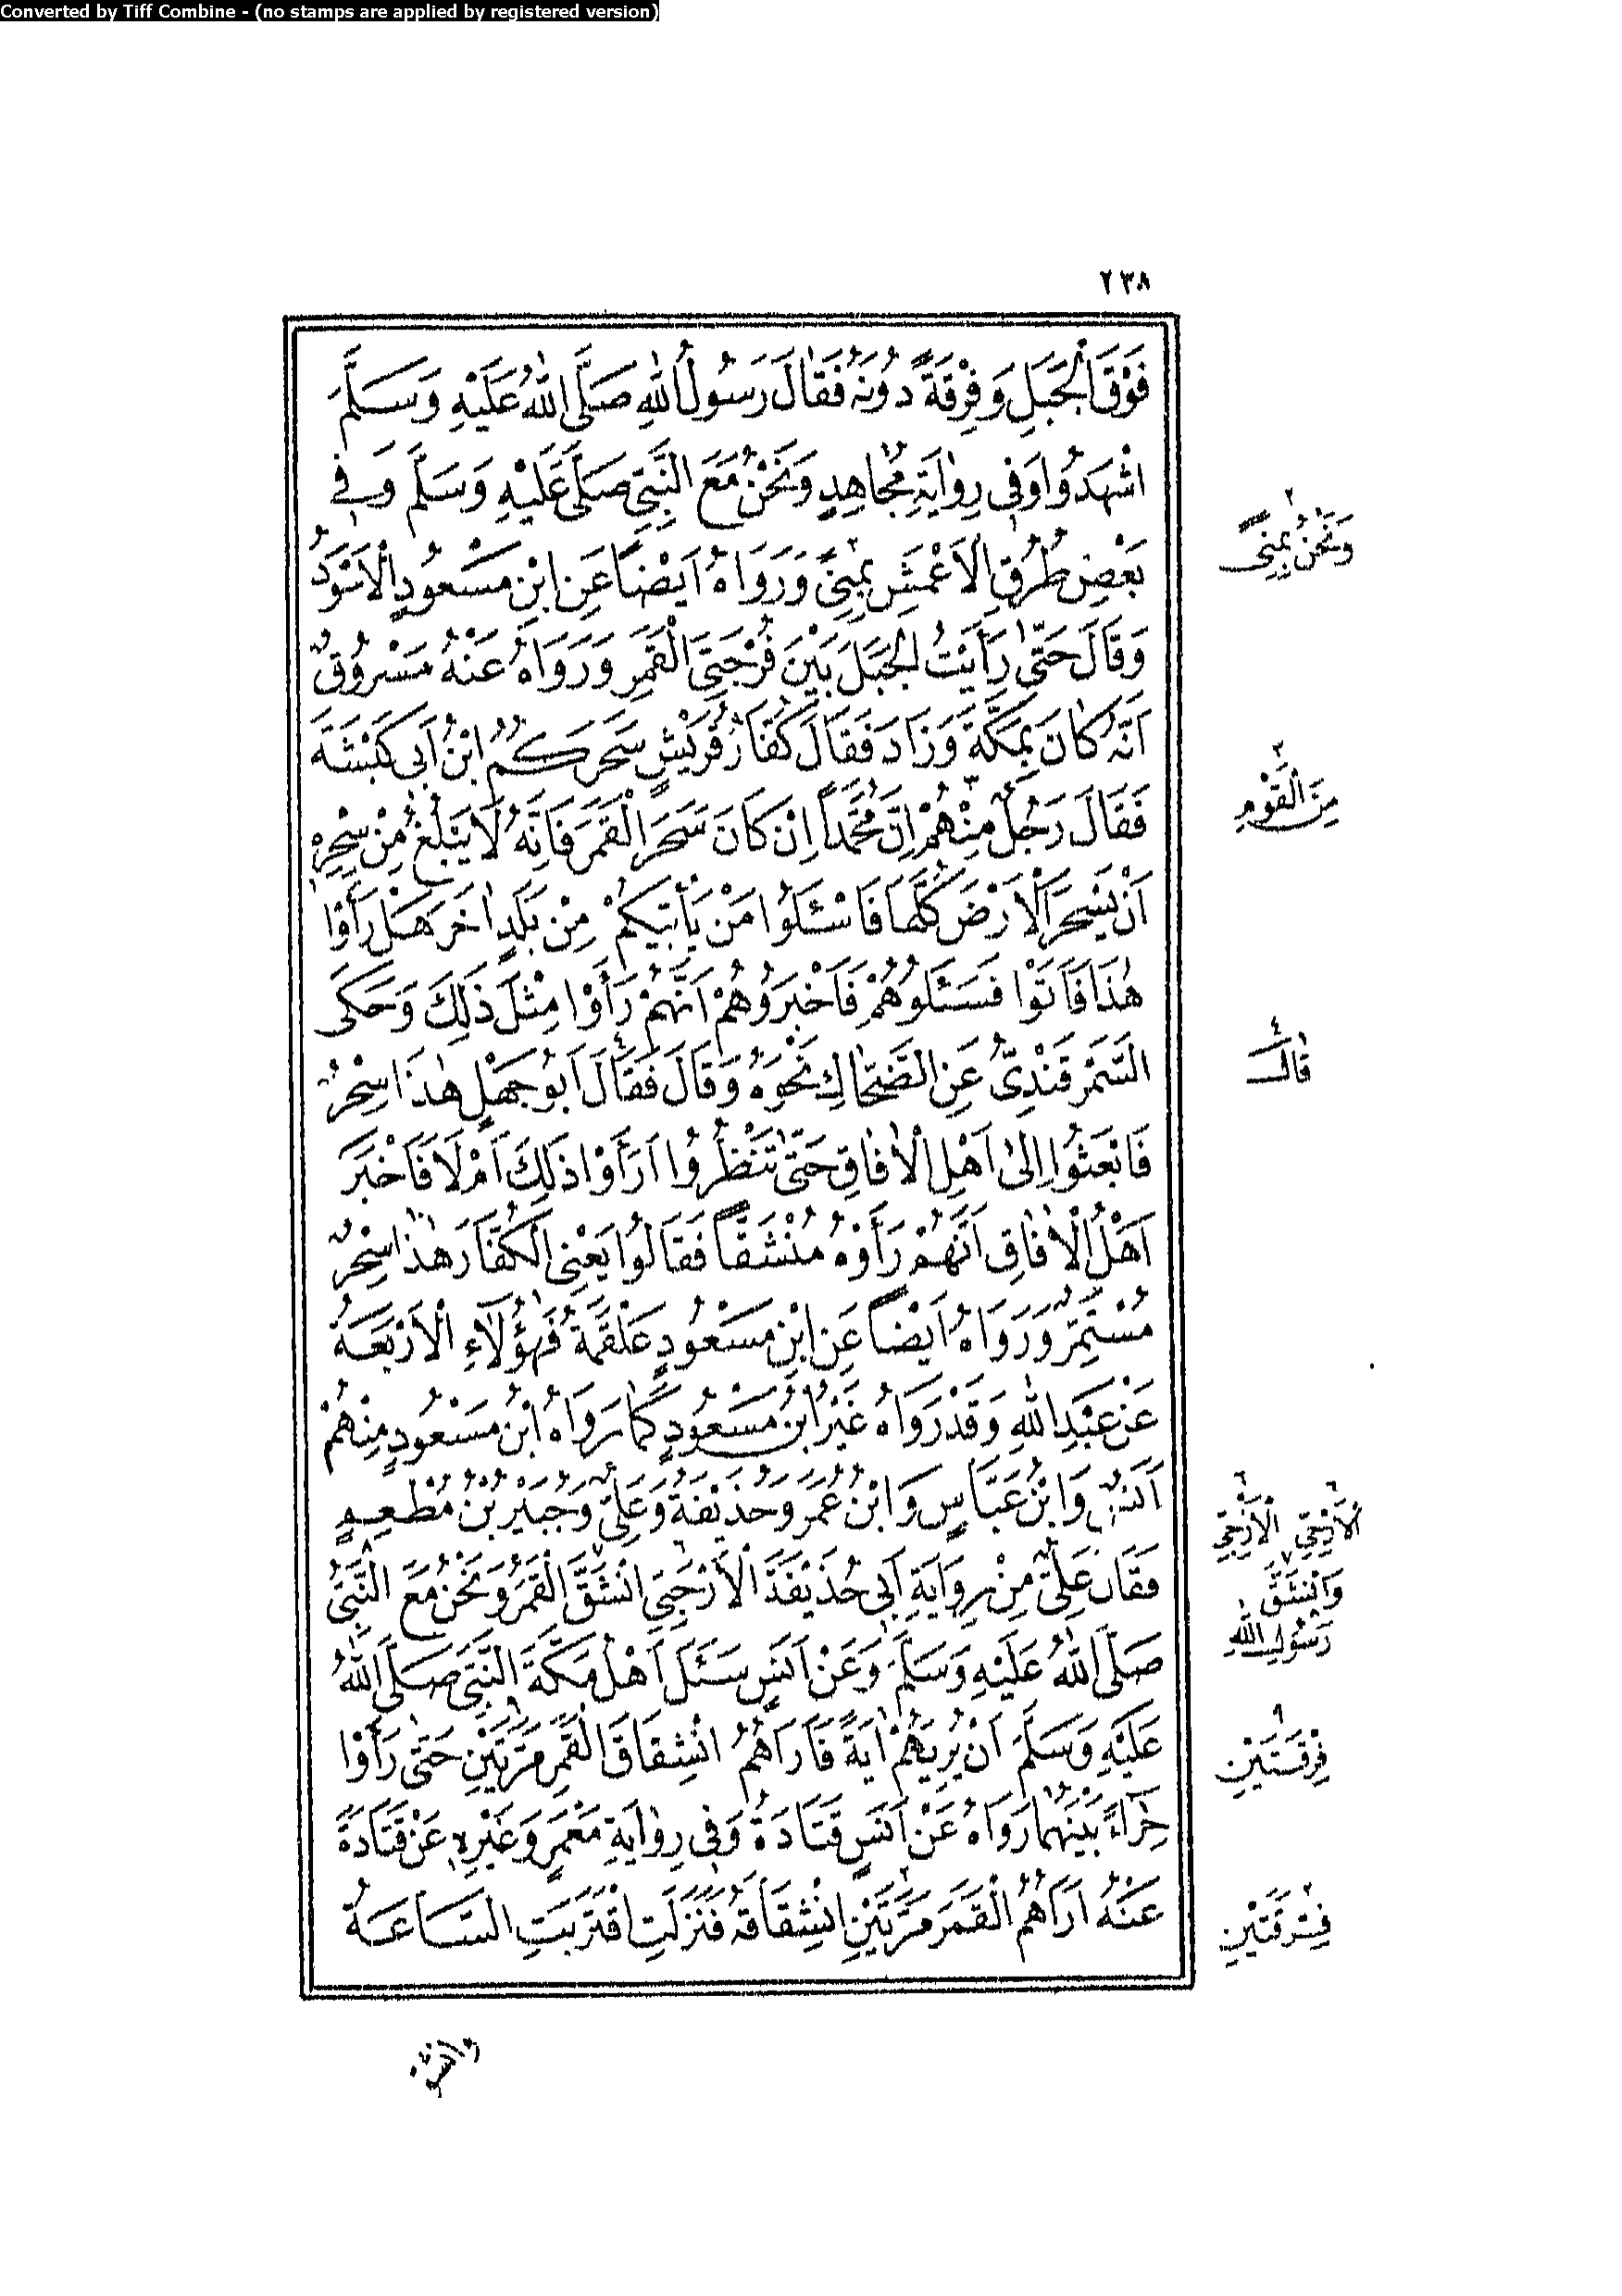 Converted by Tiff Combine - (no stamps are applied by registered version)
٢٣٨
فَوْقَ الْجَبَلِ وَفِرْقَةً دُونَهُ فَقَالَ رَسُولُ اللهِ صَلَّى اللهُ عَلَيْهِ وَسَلَّمَ
اشْهَدُوا وَفِي رِوَايَةِ مُجَاهِدٍ وَنَحْنُ مَعَ النَّبِيِّ صَلَّى عَلَيْهِ وَسَلَّمَ وَفِي
بَعْضِ طُرُقِ الْاَعْمَشِ بِمِنًى وَرَوَاهُ اَيْضًا عَنِ ابْنِ مَسْعُودٍ الْاَسْوَدُ
وَقَالَ حَتّٰى رَاَيْتُ الْجَبَلَ بَيْنَ فُرْجَتَيِ الْقَمَرِ وَرَوَاهُ عَنْهُ مَسْرُوقٌ
اَنَّهُ كَانَ بِمَكَّةَ وَزَادَ فَقَالَ كُفَّارُ قُرَيْشٍ سَحَرَكُمُ ابْنُ اَبِي كَبْشَةَ
فَقَالَ رَجُلٌ مِنْهُمْ اِنَّ مُحَمَّدًا اِنْ كَانَ سَحَرَ الْقَمَرَ فَاِنَّهُ لَا يَبْلُغُ مِنْ سِحْرِهِ
اَنْ يَسْحَرَ الْاَرْضَ كُلَّهَا فَاسْئَلُوا مَنْ يَأْتِيكُمْ مِنْ بَلَدٍ اٰخَرَ هَلْ رَأَوْا
هٰذَا فَاَتَوْا فَسَئَلُوهُمْ فَاَخْبَرُوهُمْ اَنَّهُمْ رَأَوْا مِثْلَ ذٰلِكَ وَحَكَى
السَّمَرْقَنْدِيُّ عَنِ الضَّحَّاكِ نَحْوَهُ وَقَالَ فَقَالَ اَبُو جَهْلٍ هٰذَا سِحْرٌ
فَابْعَثُوا اِلٰى اَهْلِ الْاٰفَاقِ حَتّٰى تَنْظُرُوا اَرَأَوْا ذٰلِكَ اَمْ لَا فَاَخْبَرَ
اَهْلُ الْاٰفَاقِ اَنَّهُمْ رَأَوْهُ مُنْشَقًّا فَقَالُوا يَعْنِي الْكُفَّارَ هٰذَا سِحْرٌ
مُسْتَمِرٌّ وَرَوَاهُ اَيْضًا عَنِ ابْنِ مَسْعُودٍ عَلْقَمَةُ فَهٰؤُلَاءِ الْاَرْبَعَةُ
عَنْ عَبْدِ اللهِ وَقَدْ رَوَاهُ غَيْرُ ابْنِ مَسْعُودٍ كَمَا رَوَاهُ ابْنُ مَسْعُودٍ مِنْهُمْ
اَنَسٌ وَابْنُ عَبَّاسٍ وَابْنُ عُمَرَ وَحُذَيْفَةُ وَعَلِيٌّ وَجُبَيْرُ بْنُ مُطْعِمٍ
فَقَالَ عَلِيٌّ مِنْ رِوَايَةِ اَبِي حُذَيْفَةَ الْاَرْحَبِيِّ انْشَقَّ الْقَمَرُ وَنَحْنُ مَعَ النَّبِيِّ
صَلَّى اللهُ عَلَيْهِ وَسَلَّمَ وَعَنْ اَنَسٍ سَئَلَ اَهْلُ مَكَّةَ النَّبِيَّ صَلَّى اللهُ
عَلَيْهِ وَسَلَّمَ اَنْ يُرِيَهُمْ اٰيَةً فَاَرَاهُمُ انْشِقَاقَ الْقَمَرِ مَرَّتَيْنِ حَتّٰى رَأَوْا
حِرَاءً بَيْنَهُمَا رَوَاهُ عَنْ اَنَسٍ قَتَادَةُ وَفِي رِوَايَةِ مَعْمَرٍ وَغَيْرِهِ عَنْ قَتَادَةَ
عَنْهُ اَرَاهُمُ الْقَمَرَ مَرَّتَيْنِ انْشِقَاقَهُ فَنَزَلَتِ اقْتَرَبَتِ السَّاعَةُ
٢
وَنَحْنُ بِمِنًى
٣
مِنَ الْقَوْمِ
٤
قَالَ
٦ ٦
الْاَرْحَبِيِّ
٧
وَانْشَقَّ
٨
رَسُولِ اللهِ
٩
فِرْقَتَيْنِ
٢
فِرْقَتَيْنِ